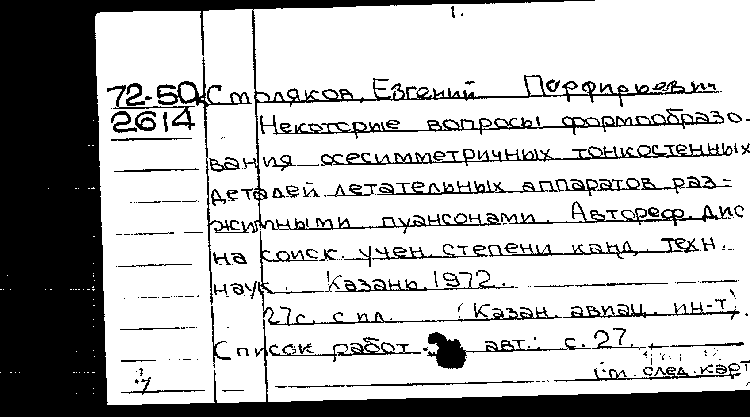 1.
72-50к Столяков, Евгений Порфирьевич
2614 Некоторые вопросы формообразо-
вания осесимметричных тонкостенных
деталей летательных аппаратов раз-
жимными пуансонами. Автореф. дис
на соиск. учен. степени канд. техн.
наук. Казань. 1972.
27с. с ил. (Казан. авиац. ин-т).
Список работ авт.: с. 27.
см след. карт